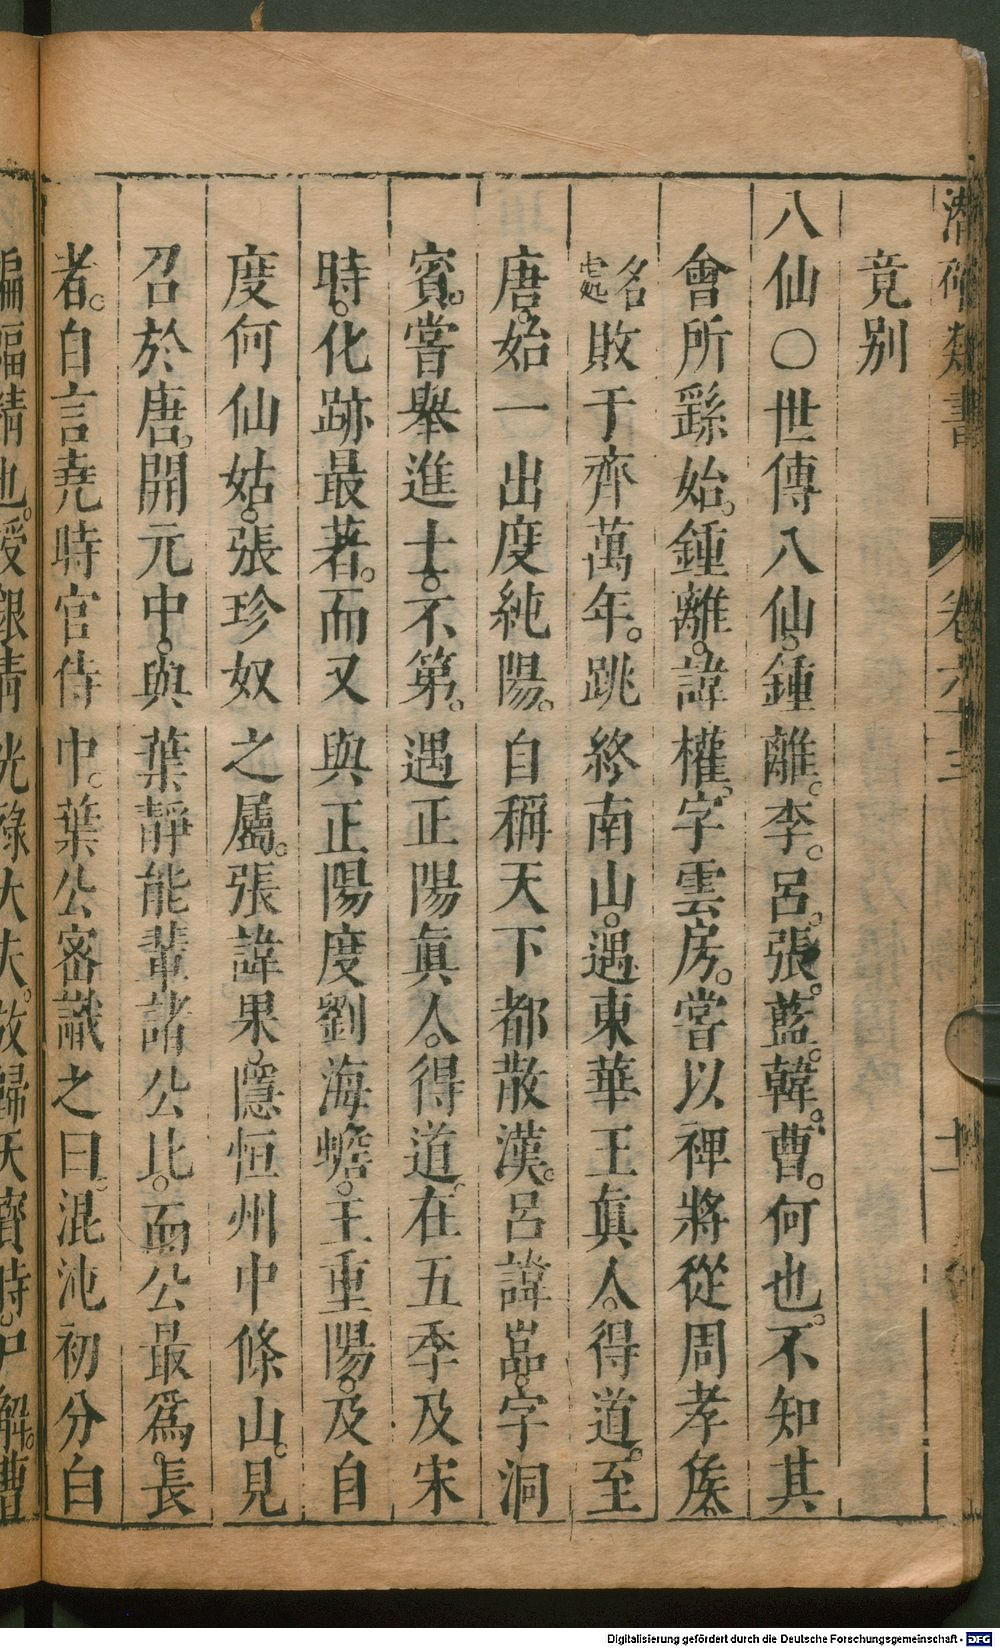 潛確類書 卷六十三 十一
竟别
八仙○世傳八仙。鍾離。李。呂。張。藍。韓。曹。何也。不知其
會所繇始。鍾離。諱權。字雲房。嘗以裨將從周孝侯。
名處敗于齊萬年。跳終南山。遇東華王眞人。得道。至
唐。始一出度純陽。自稱天下都散漢。呂諱嵒。字洞
賓。嘗舉進士。不第。遇正陽眞人。得道。在五季及宋
時。化跡最著。而又與正陽度劉海蟾。王重陽。及自
度何仙姑。張珍奴之屬。張諱果。隱恒州中條山。見
召於唐。開元中。與葉靜能輩諸公比。而公最爲。長
者。自言堯時官侍中。葉公密識之曰。混沌初分白
蝙蝠精也。授銀靑光祿大夫。放歸天寶時。尸解。曹
Digitalisierung gefördert durch die Deutsche Forschungsgemeinschaft - DFG